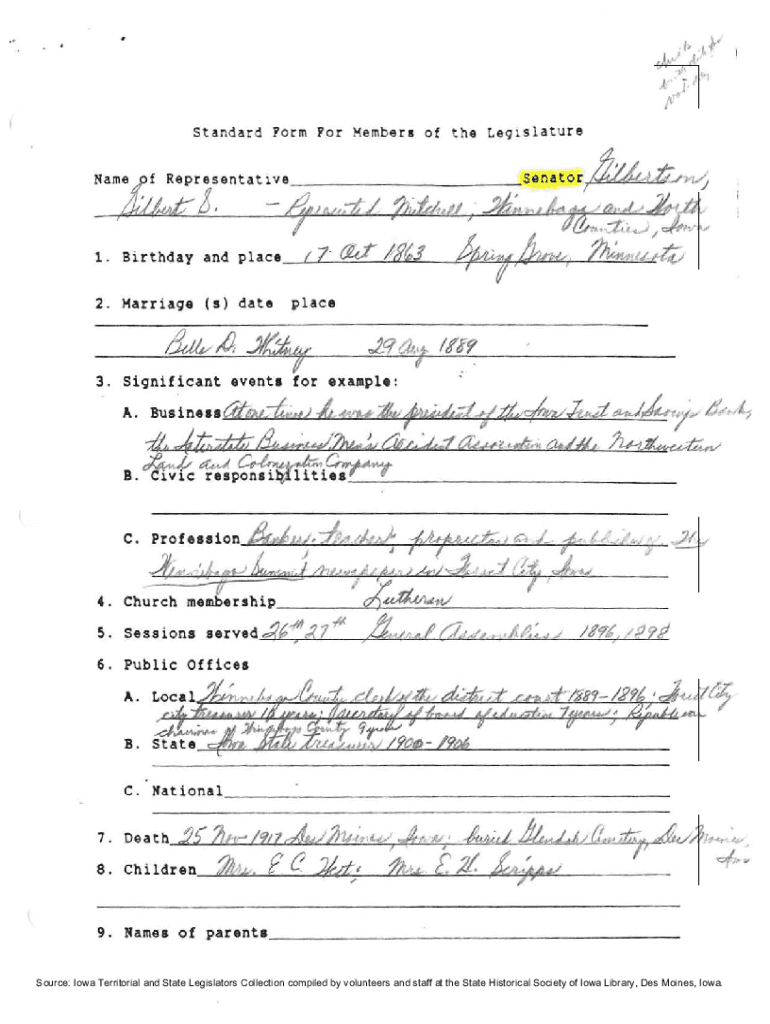 Standard Form For Members of the Legislature
Name of Representative Senator Gilbertson,
Gilbert S. - Represented Mitchell, Winnebago and Worth
Counties, Iowa
1. Birthday and place 17 Oct 1863 Spring Grove, Minnesota
2. Marriage (s) date place
Belle D. Whitney 29 Aug 1889
3. Significant events for example:
A. Business At one time he was the president of the Iowa Trust and Savings Bank,
the Interstate Business Men's Accident Association and the Northwestern
Land and Colonization Company
B. Civic responsibilities
C. Profession Banker, teacher, proprietor and publisher of The
Winnebago Summit newspaper in Forest City, Iowa
4. Church membership Lutheran
5. Sessions served 26th, 27th General Assemblies 1896, 1898
6. Public Offices
A. Local Winnebago County clerk of the district court 1889-1896; Forest City
city treasurer 10 years; Secretary of board of education 7 years; Republican
chairman of Winnebago County
B. State Iowa State treasurer 1900-1906
C. National
7. Death 25 Nov 1917 Des Moines, Iowa; buried Glendale Cemetery, Des Moines,
Iowa
8. Children Mrs. E. C. Mrs. E. H. Scripps
9. Names of parents
Source: Iowa Territorial and State Legislators Collection compiled by volunteers and staff at the State Historical Society of Iowa Library, Des Moines, Iowa.